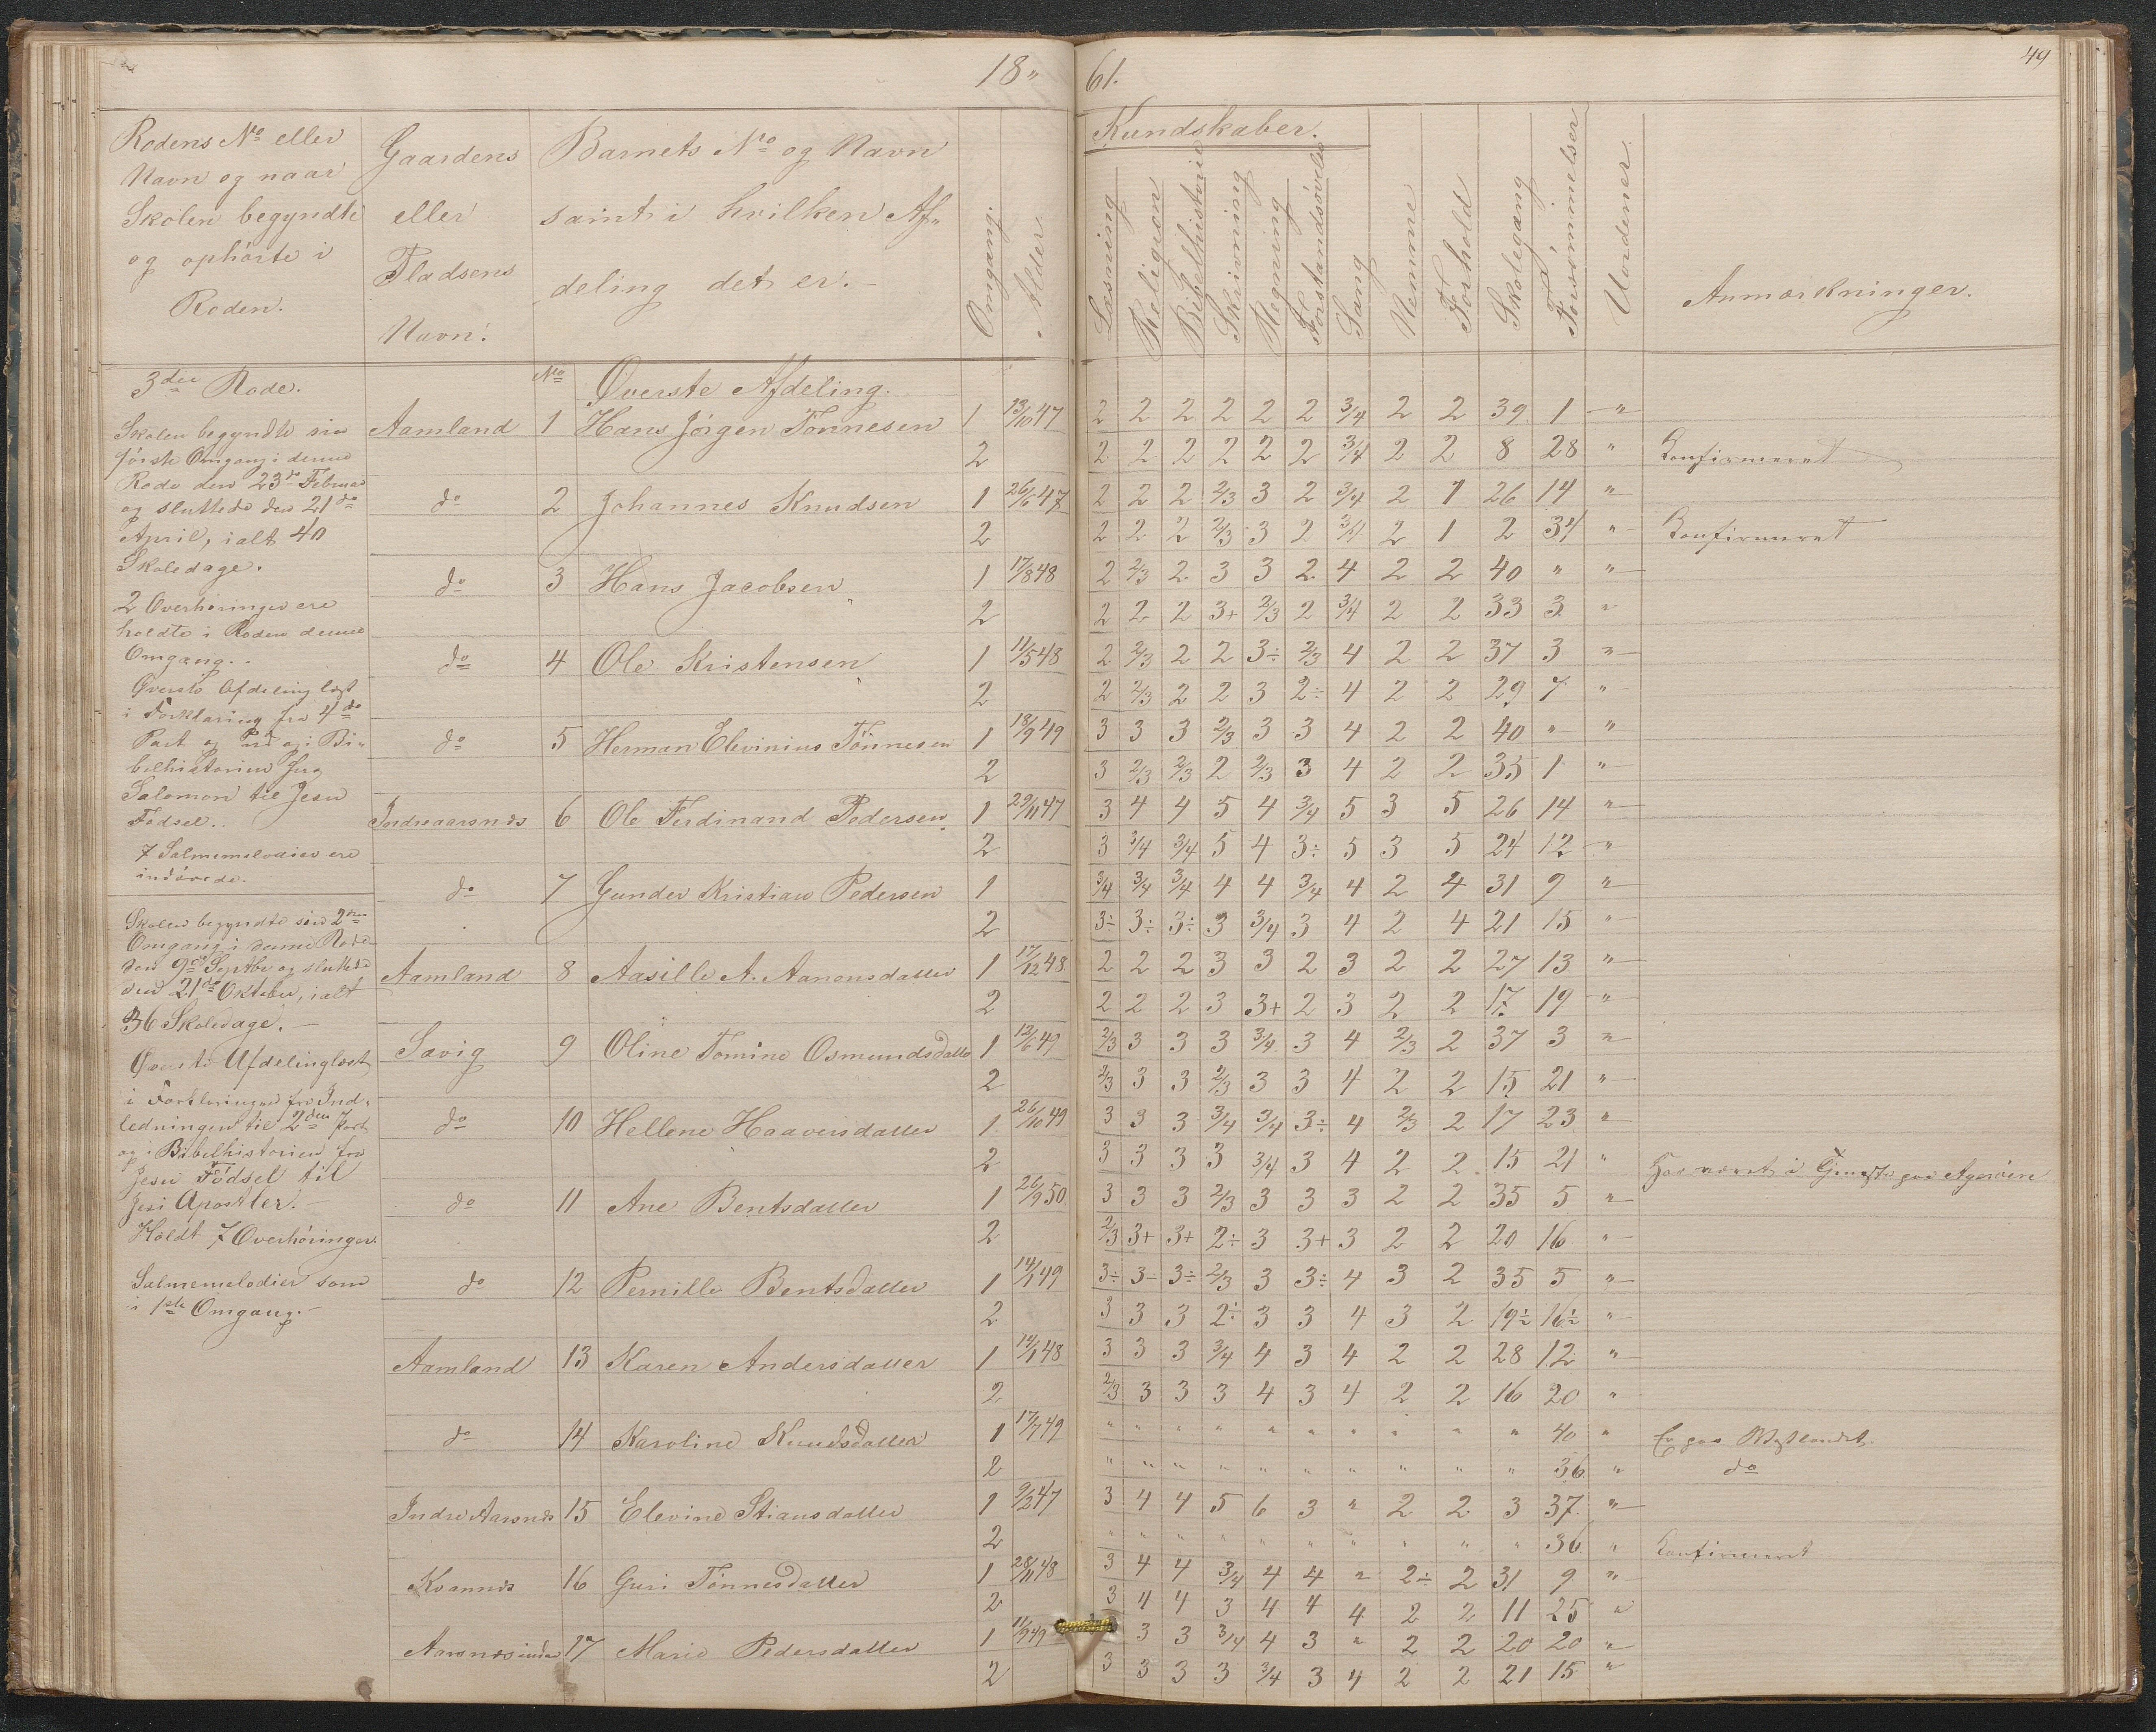 18„ 61.
49
Rodens No eller
Navn og naar
Skolen begyndte
og ophörte i
Roden.
Gaardens
eller
Pladsens
Navn.
Barnets No og Navn
samt i hvilken Af„
deling det er.
Omgang.
Alder
Kundskaber.
Læsning
Religion
Bibelhistorie
Skrivning
Regning
Forstandsövelse
Sang
Nemme
Forhold
Skolegang
Forsömmelser
Uordener.
Anmærkninger.
3die Rode.
Skolen begyndte sin
förste Omgang i denne
Rode den 23de Februar
og sluttede den 21de
April, ialt 40
Skoledage.
2 Overhöringer ere
holdte i Roden denne
Omgang.
Överste Afdeling læst
i Forklaring fra 4de
Part og i Bi„
belhistorien fra
Salomon til Jesu
Födsel.
7 Salmemelodier ere
indövede.
Skolen begyndte sin 2den
Omgang i denne Rode
den 9de Septbr og sluttede
den 21de Oktober, ialt
36 Skoledage.
Överste Afdeling læst
i Forklaringen fra Ind„
ledningen til 2den Part
og i Bibelhistorien fra
Jesu Födsel til
Jesu Apostler.
Holdt 7 Overhöringer.
Salmemelodier som
i 1ste Omgang.
No Överste Afdeling.
Aamland 1 Hans Jörgen Tönnesen 1 13/10 47 2 2 2 2 2 2 3/4 2 2 39 1 „
2 2 2 2 2 2 2 3/4 2 2 8 28 „ Konfirmeret
do 2 Johannes Knudsen 1 26/6 47 2 2 2 2/3 3 2 3/4 2 1 26 14 „
2 2 2 2 2/3 3 2 3/4 2 1 2 34 „ Konfirmeret
do 3 Hans Jacobsen 1 17/8 48 2 2/3 2 3 3 2 4 2 2 40 „ „
2 2 2 2 3+ 2/3 2 3/4 2 2 33 3 „
do 4 Ole Kristensen 1 11/5 48 2 2/3 2 2 3÷ 2/3 4 2 2 37 3 „
2 2 2/3 2 2 3 2÷ 4 2 2 29 7 „
do 5 Herman Elevinius Tönnesen 1 18/9 49 3 3 3 2/3 3 3 4 2 2 40 „ „
2 3 2/3 2/3 2 2/3 3 4 2 2 35 1 „
Indreaarsnes 6 Ole Ferdinand Pedersen 1 29/11 47 3 4 4 5 4 3/4 5 3 5 26 14 „
2 3 3/4 3/4 5 4 3÷ 5 3 5 24 12 „
do 7 Gunder Kristian Pedersen 1 3/4 3/4 3/4 4 4 3/4 4 2 4 31 9 „
2 3÷ 3÷ 3÷ 3 3/4 3 4 2 4 21 15 „
Aamland 8 Aasille A. Aanonsdatter 1 17/12 48 2 2 2 3 3 2 3 2 2 27 13 „
2 2 2 2 3 3+ 2 3 2 2 17 19 „
Sævig 9 Oline Tomine Osmundsdatter 1 12/6 49 2/3 3 3 3 3/4 3 4 2/3 2 37 3 „
2 2/3 3 3 2/3 3 3 4 2 2 15 21 „
do 10 Hellene Haaversdatter 1 26/10 49 3 3 3 3/4 3/4 3÷ 4 2/3 2 17 23 „
2 3 3 3 3 3/4 3 4 2 2 15 21 „ Har været i Tjeneste paa
do 11 Ane Bentsdatter 1 26/9 50 3 3 3 2/3 3 3 3 2 2 35 5 „
2 2/3 3+ 3+ 2÷ 3 3+ 3 2 2 20 16 „
do 12 Pernille Bentsdatter 1 14/1 49 3÷ 3÷ 3÷ 2/3 3 3÷ 4 3 2 35 5 „
2 3 3 3 2÷ 3 3 4 3 2 19½ 16½ „
Aamland 13 Karen Andersdatter 1 14/1 48 3 3 3 3/4 4 3 4 2 2 28 12 „
2 2/3 3 3 3 4 3 4 2 2 16 20 „
do 14 Karoline Knudsdatter 1 17/7 49 „ „ „ „ „ „ „ „ „ „ 40 „ Er paa Vestlandet.
2 „ „ „ „ „ „ „ „ „ „ 36 „ do
Indre Aarsnes 15 Elevine Stiansdatter 1 9/2 47 3 4 4 5 6 3 „ 2 2 3 37 „
2 „ „ „ „ „ „ „ „ „ „ 36 „ Konfirmeret
Kvannes 16 Guri Tönnesdatter 1 28/11 48 3 4 4 3/4 4 4 „ 2÷ 2 31 9 „
2 3 4 4 3 4 4 4 2 2 11 25 „
Aarsnes indre 17 Marie Pedersdatter 1 11/9 49 3 3 3/4 4 3 „ 2 2 20 20 „
2 3 3 3 3 3/4 3 4 2 2 21 15 „